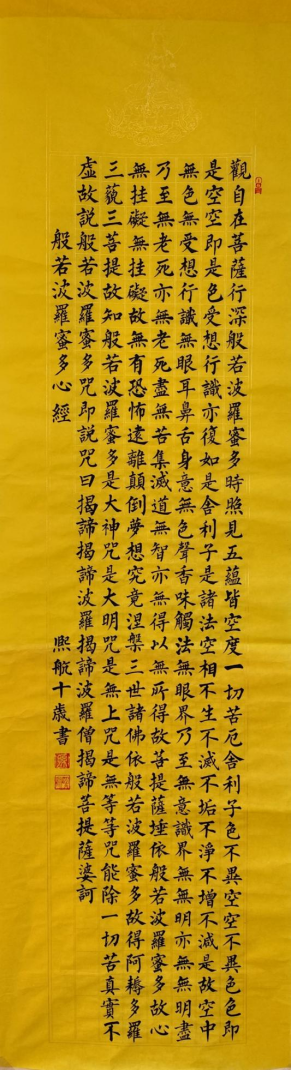 觀自在菩薩行深般若波羅蜜多時照見五蘊皆空度一切苦厄舍利子色不異空空不異色色即
是空空即是色受想行識亦復如是舍利子是諸法空相不生不滅不垢不淨不增不減是故空中
無色無受想行識無眼耳鼻舌身意無色聲香味觸法無眼界乃至無意識界無無明亦無無明盡
乃至無老死亦無老死盡無苦集滅道無智亦無得以無所得故菩提薩埵依般若波羅蜜多故心
無挂礙無挂礙故無有恐怖遠離顛倒夢想究竟涅槃三世諸佛依般若波羅蜜多故得阿耨多羅
三藐三菩提故知般若波羅蜜多是大神咒是大明咒是無上咒是無等等咒能除一切苦真實不
虛故說般若波羅蜜多咒即說咒曰揭諦揭諦波羅揭諦波羅僧揭諦菩提薩婆訶
般若波羅蜜多心經
熙航十歲書